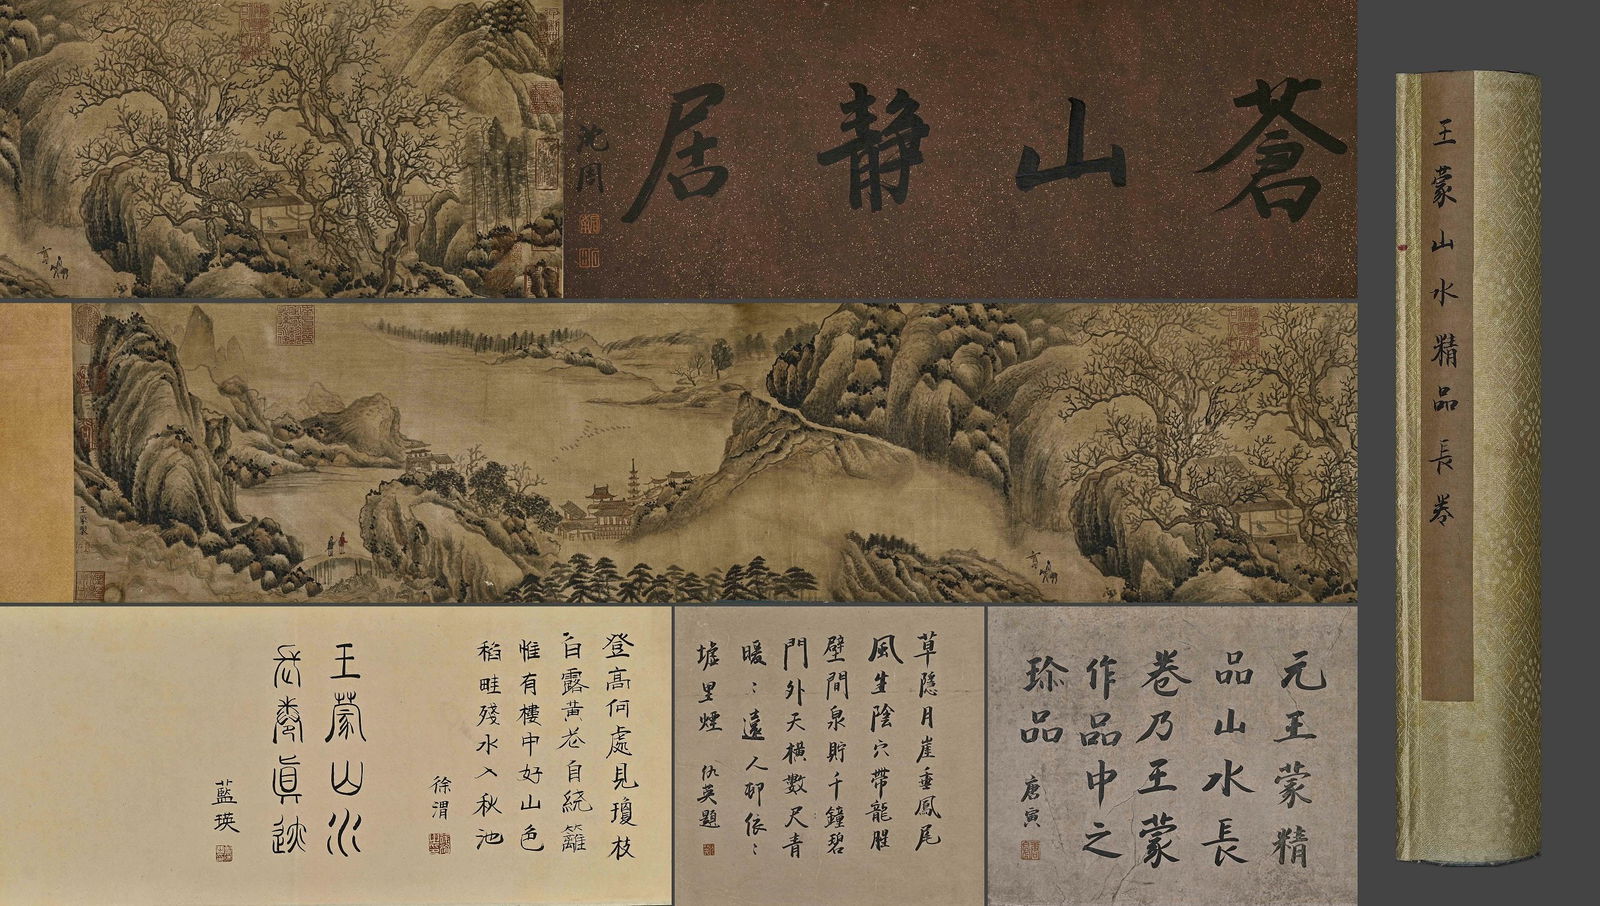 蒼山靜居
沈周
王蒙製
王蒙山水精品長卷
元王蒙精
品山水長
卷乃王蒙
作品中之
珍品
唐寅
草隱月崖垂鳳尾
風生陰穴帶龍腥
壁間泉貯千鐘碧
門外天橫數尺青
暖：遠人邨依：
墟里煙
仇英題
登高何處見瓊枝
白露黃花自繞籬
惟有樓中好山色
稻畦殘水入秋池
徐渭
王蒙山水
長卷真跡
藍瑛